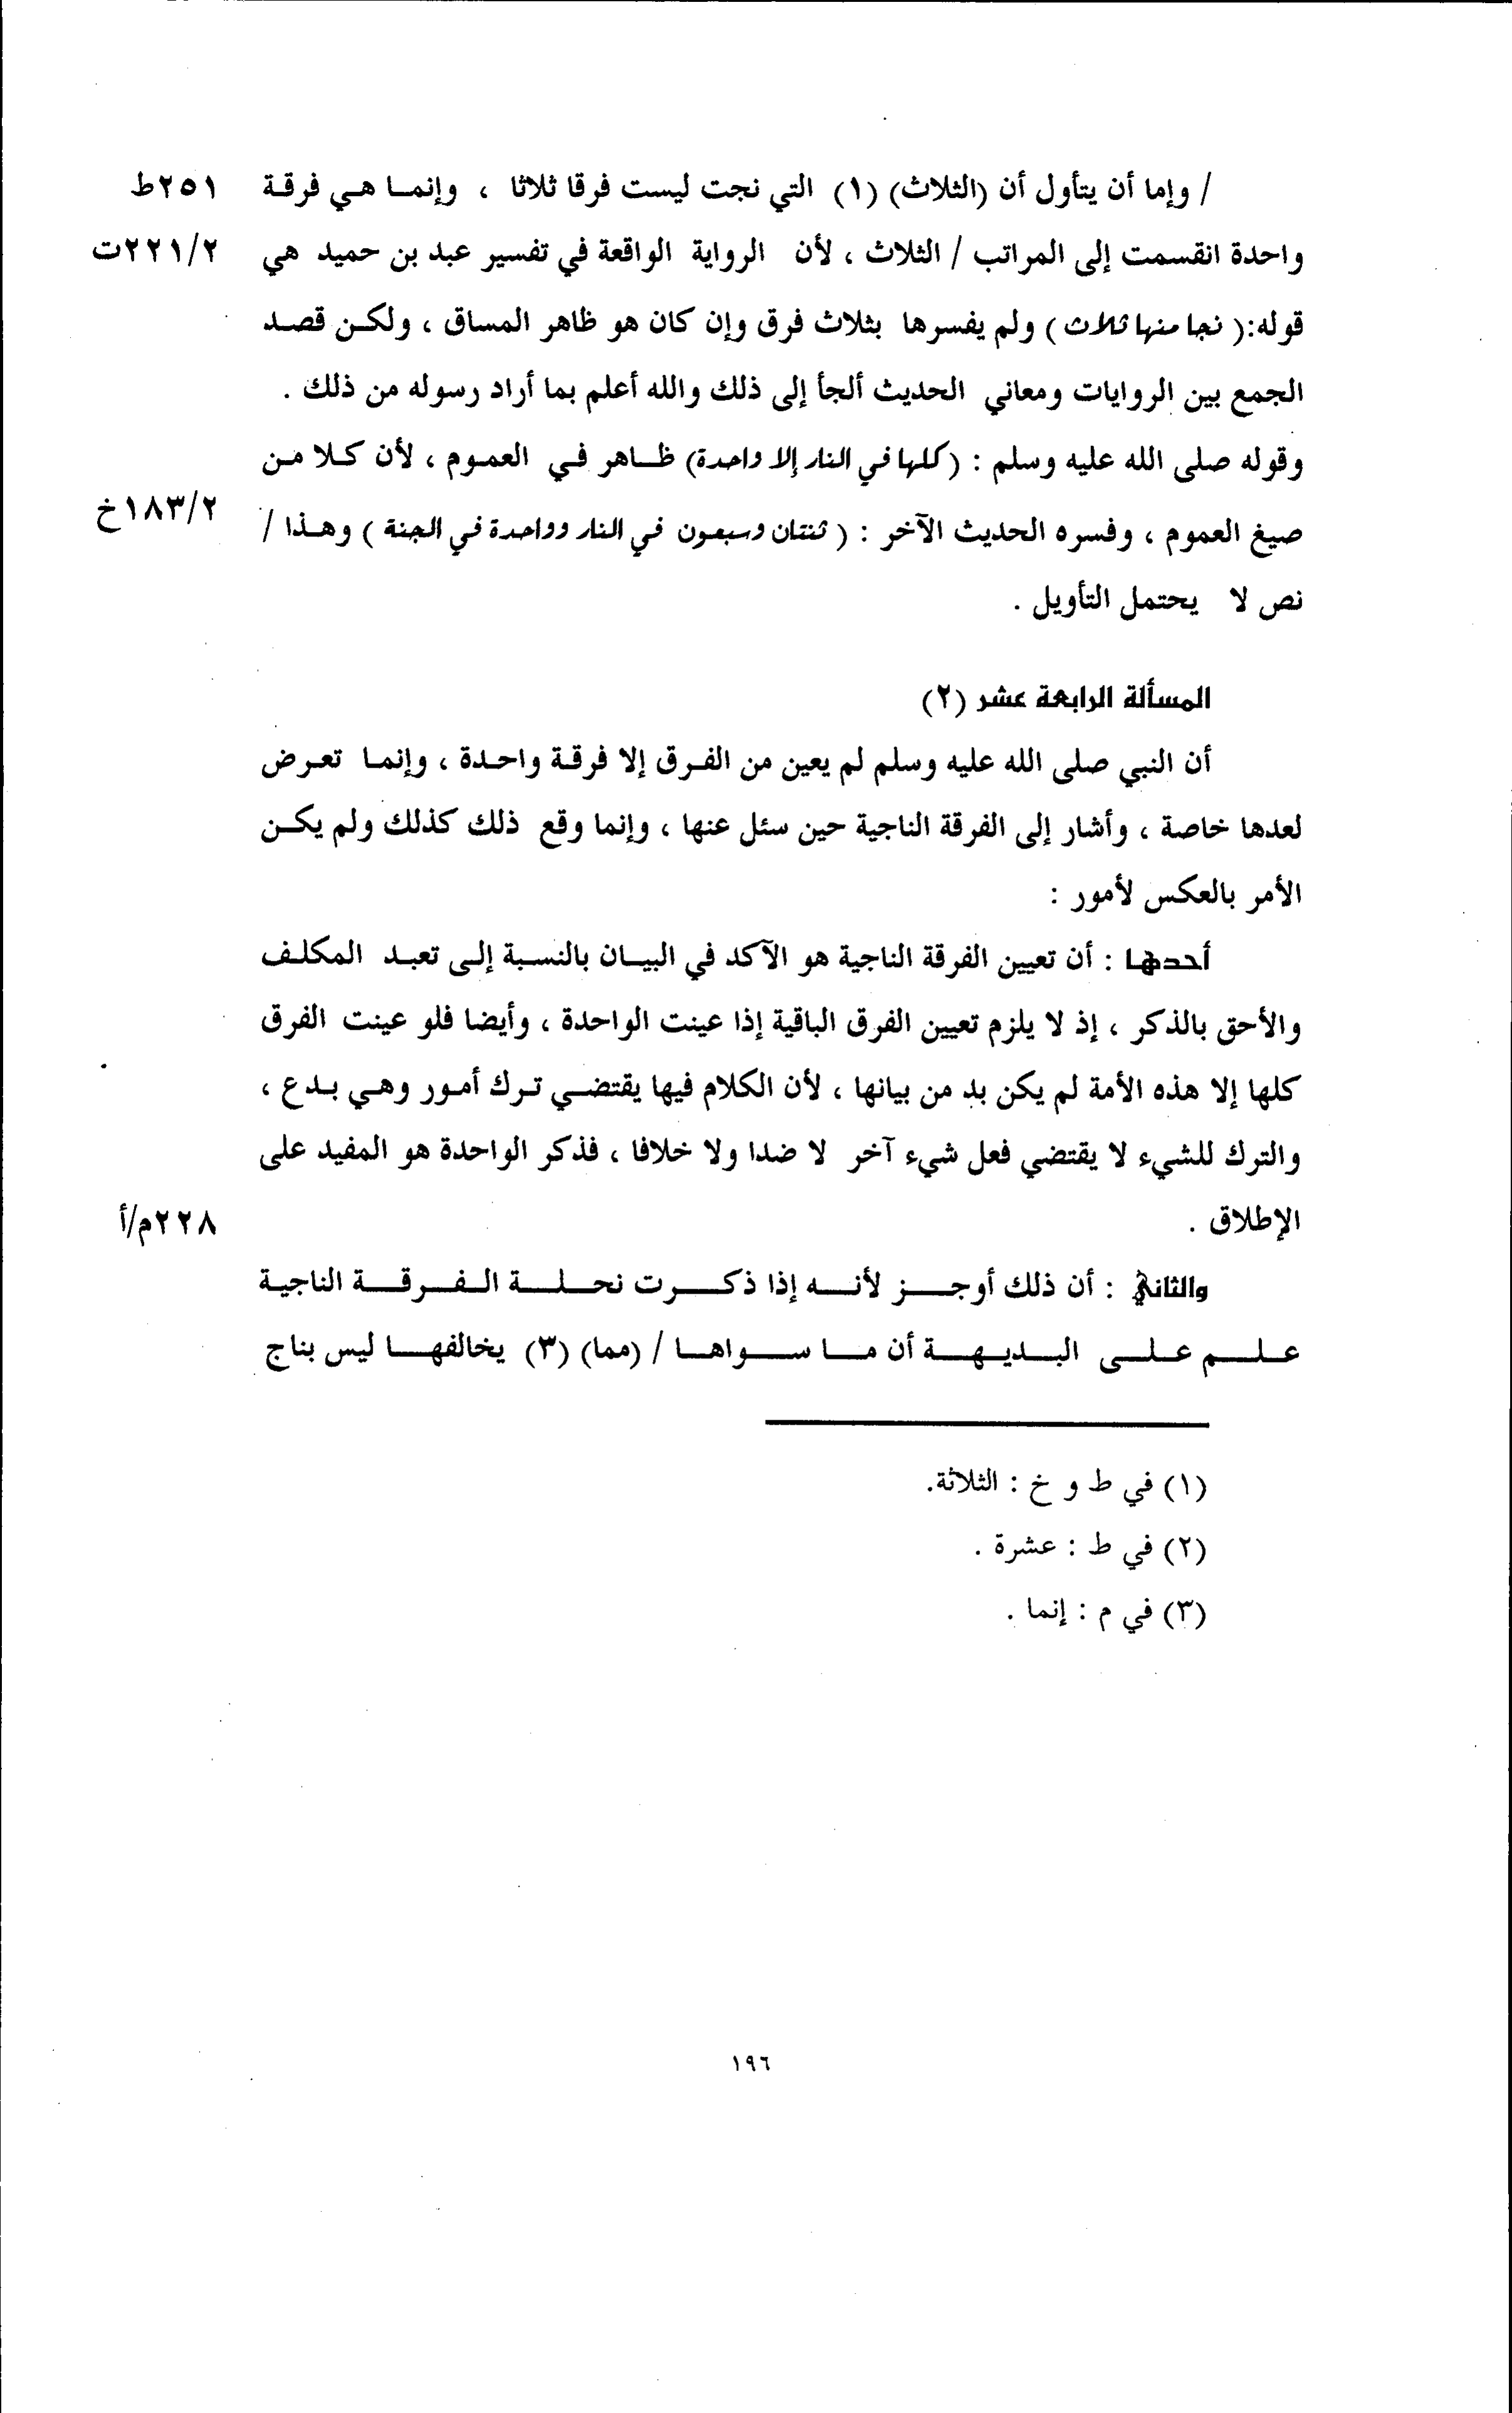 / وإما أن يتأول أن (الثلاث) (١) التي نجت ليست فرقا ثلاثا ، وإنما هي فرقة ٢٥١ط
واحدة انقسمت إلى المراتب / الثلاث ، لأن الرواية الواقعة في تفسير عبد بن حميد هي ٢٢١/٢ت
قوله:( نجا منها ثلاث ) ولم يفسرها بثلاث فرق وإن كان هو ظاهر المساق ، ولكن قصد
الجمع بين الروايات ومعاني الحديث ألجأ إلى ذلك والله أعلم بما أراد رسوله من ذلك .
وقوله صلى الله عليه وسلم : (كلها في النار إلا واحدة) ظاهر في العموم ، لأن كلا من
صيغ العموم ، وفسره الحديث الآخر : ( ثنتان وسبعون في النار وواحدة في الجنة ) وهذا / ١٨٣/٢خ
نص لا يحتمل التأويل .
المسألة الرابعة عشر (٢)
أن النبي صلى الله عليه وسلم لم يعين من الفرق إلا فرقة واحدة ، وإنما تعرض
لعدها خاصة ، وأشار إلى الفرقة الناجية حين سئل عنها ، وإنما وقع ذلك كذلك ولم يكن
الأمر بالعكس لأمور :
أحدها : أن تعيين الفرقة الناجية هو الآكد في البيان بالنسبة إلى تعبد المكلف
والأحق بالذكر ، إذ لا يلزم تعيين الفرق الباقية إذا عينت الواحدة ، وأيضا فلو عينت الفرق
كلها إلا هذه الأمة لم يكن بد من بيانها ، لأن الكلام فيها يقتضي ترك أمور وهي بدع ،
والترك للشيء لا يقتضي فعل شيء آخر لا ضدا ولا خلافا ، فذكر الواحدة هو المفيد على
الإطلاق . ٢٢٨م/أ
والثاني : أن ذلك أوجز لأنه إذا ذكرت نحلة الفرقة الناجية
علم على البديهة أن ما سواها / (مما) (٣) يخالفها ليس بناج
(١) في ط و خ : الثلاثة.
(٢) في ط : عشرة .
(٣) في م : إنما .
١٩٦